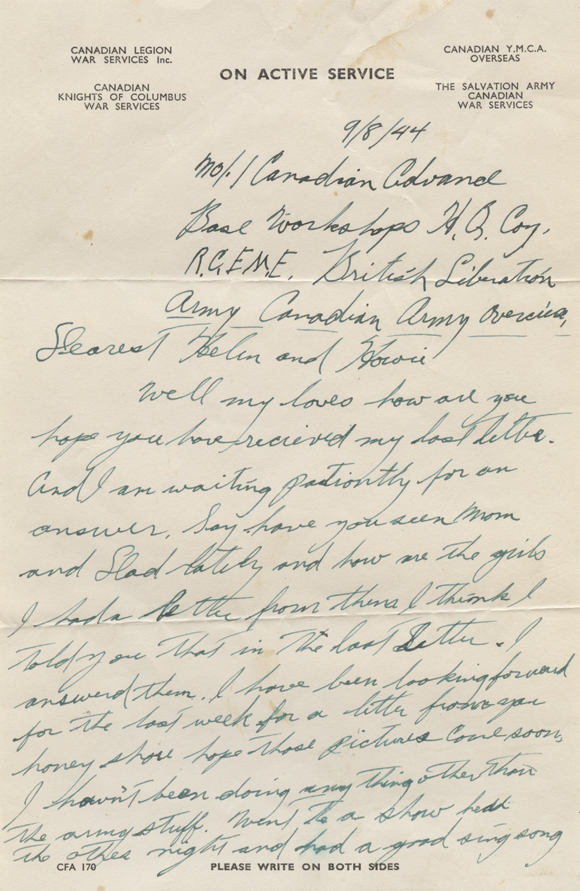 CANADIAN LEGION
WAR SERVICES Inc.
CANADIAN
KNIGHTS OF COLUMBUS
WAR SERVICES
ON ACTIVE SERVICE
CANADIAN Y.M.C.A.
OVERSEAS
THE SALVATION ARMY
CANADIAN
WAR SERVICES
9/8/44
No/. 1 Canadian Advance
Base Workshops H.Q. Coy.
R.C.E.M.E. British Liberation
Army Canadian Army Overseas,
Dearest Helen and Howie
Well my loves how are you
hope you have recieved my last letter.
And I am waiting pationtly for an
answer. Say have you seen Mom
and Dad lately and how are the girls
I had a letter from them I think I
told you that in the last Letter. I
answerd them. I have been looking forward
for the last week for a letter from you
honey shore hope those pictures come soon,
I havn't been doing any thing other than
the army stuff. Went to a show here
the other night and had a good sing song
CFA 170
PLEASE WRITE ON BOTH SIDES